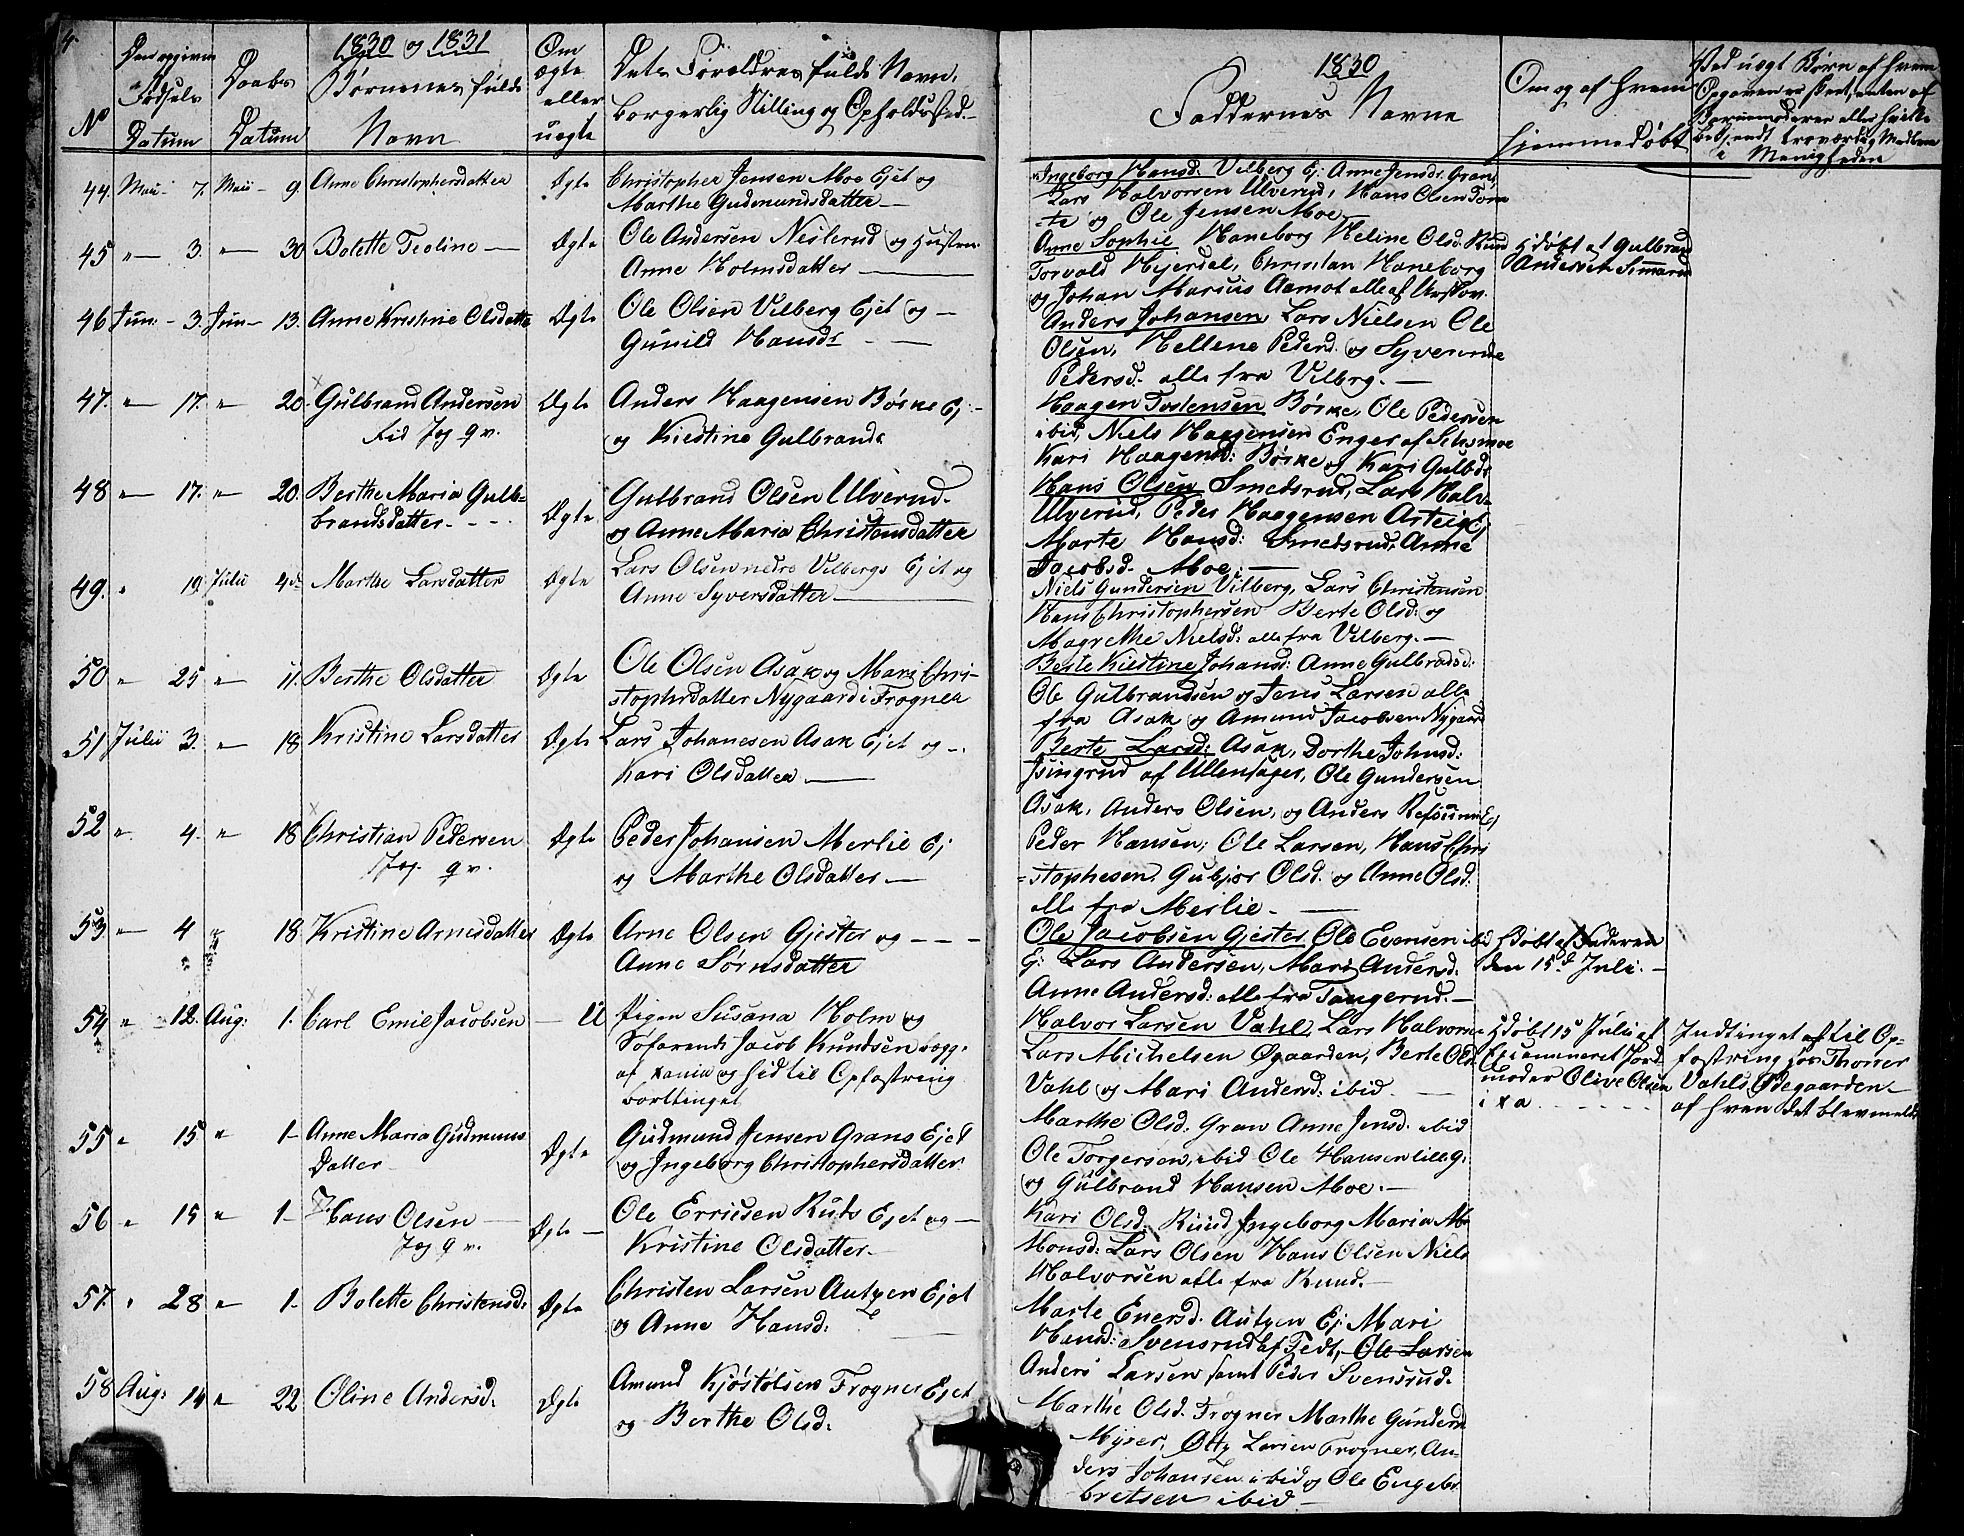 4.
1830 og 1831
No
Den opgivne Fødsels Datum
Daabs Datum
Børnenes fulde Navn
Om ægte eller uægte
Dets Forældres fulde Navn, borgerlig Stilling og Opholdssted
1830
Faddernes Navne
Om og af hvem hjemmedøbt
Ved uægt Børn af hvem Opgaven er skeet, enten af Barnemoderen eller hvilke bekjendt troværdig Medlem i Menigheden
44. Maii 7. Maii 9. Anne Christophersdatter Ægte Christopher Jensen Moe Ejet og
Marthe Gudmundsdatter
Ingeborg Hansd. Vilberg Ej: Anne Jensdr. Gran,
Lars Halvorsen Ulverud, Hans Olsen
og Ole Jensen Moe
45 " 3. " 30 Bolette Teoline Ægte Ole Andersen Neslerud og Hustru
Anne Holmsdatter
Anne Sophie Haneborg Heline Olsd. Rund
Torvald Hejerdal, Christian Haneborg
og Johan Marius Aamot alle af Urskov.
Hdøbt af Gulbrand
Andersen
46 Jun. 3. Jun 13. Anne Kristine Olsdatter Ægte Ole Olsen Vilberg Ejet og
Gunild Hansdr
Anders Johansen, Lars Nielsen Ole
Olsen, Hellene Pedersd. og Syverinde
Pedersd. alle fra Vilbrg.
47. " 17. " 20. Gulbrand Andersen Ægte Anders Haagensen Børke Ej.
Jog q v.
og Kiestine Gulbrands
Haagen Tostensen Børke, Ole Pedersen
ibid, Niels Haagensen Enger af
Kari Haagensd: Børke og Kari Gulbdr
48 " 17. " 20. Berthe Maria Gulb=
brandsdatter
Ægte Gulbrand Olsen Ulverud
og Anne Maria Christensdatter
Hans Olsen Smedsrud, Lars Halv.
Ulverud, Peder Haagensen Asteig
Marte Hansd: Smedsrud, Anne
Jacobsd. Moe.
49. " 19 Julii 4de Marthe Larsdatter Ægte Lars Olsen nedre Vilbergs Ejet og
Anne Syversdatter
Niels Gundersen Vilberg, Lars Christensen
Hans Christophersen Berte Olsd: og
Magrethe Nielsd: alle fra Vilberg.
50 " 25 " 11. Berthe Olsdatter Ægte Ole Olsen Asak og Mari Chri-
stophrdatter Nygaard i Frogner
Berte Kiestine Johansd: Anne Gulbradsd:
Ole Gulbrandsen og Jens Larsen alle
fra Asak og Amund Jacobsen Nygaard
51 Julii 3. " 18 Kristine Larsdatter Ægte Lars Johanesen Asak Ejet og
Kari Olsdatter
Berte Larsd: Asak, Dorthe Johnsd:
af Ullensager, Ole Gundersen
Asak, Anders Olsen, og Anders Refsum Ej
52 " 4. " 18 Christian Pedersen Ægte Peder Johansen Merlie Ej
Jog. q v.
og Marthe Olsdatter
Peder Hansen, Ole Larsen, Hans Chri
=stophesen Gubjør Olsd. og Anne Olsd.
alle fra Merlie.
53 " 4 18 Kristine Arnesdatter Ægte Arne Olsen Gjester og
Anne Sørnsdatter
Ole Jacobsen Gjester, Ole Evensen ibid
Ej: Lars Andersen, Mari Andersd.
Anne Andersd: alle fra Tangerud.
Hdøbt af Faderen
den 15d Juli.
54 " 12. Aug: 1. Carl Emil Jacobsen U Pigen Susana Holm og
Søfarende Jacob Knudsen begge
af Xania og hid til Opfostring
bortlinget
Halvor Larsen Vahl, Lars Halvorsen
Lars Michelsen Øgaarden, Berte Olsd.
Vahl og Mari Andersd: ibid.
Hdøbt 15 Julii af
Examineret Jord
moder Olive Olsen
i xa
Indtinget af til Op-
fostring hos Thorer
Vahls Ødegaarden
af hven det blev meldt
55 " 15 " 1 Anne Maria Gudmuns
Datter
Ægte Gudmund Jensen Grans Ejet
og Ingeborg Christophersdatter
Marthe Olsd: Gran Anne Jensd. ibid
Ole Torgersen, ibid Ole Hansen lille G.
og Gulbrand Hansen Moe.
56 " 15 " 1 Hans Olsen Ægte Ole Ericsen Ruds Ejet og
Jog q v.
Kristine Olsdatter
Kari Olsd. Ruud Ingeborg Maria
Monsd: Lars Olsen Hans Olsen Niels
Halvorsen alle fra Ruud.
57. " 28 " 1 Bolette Christensd: Ægte Christen Larsen Autzen Ejet
og Anne Hansd:
Marte Enersd. Autzen Ej: Mari
Hansd: Svensrud af Fedt, Ole Larsen
Anders Larsen samt Peder Svensrud.
58 Aug: 14 " 22 Oline Andersd. Ægte Amund Kjøstolsen Frogner Ejet
og Berthe Olsd:
Marthe Olsd. Frogner Marthe Gundersd
Myrer, Larsen Frogner, An-
ders Johansen ibid og Ole Engebr
bretsen ibid